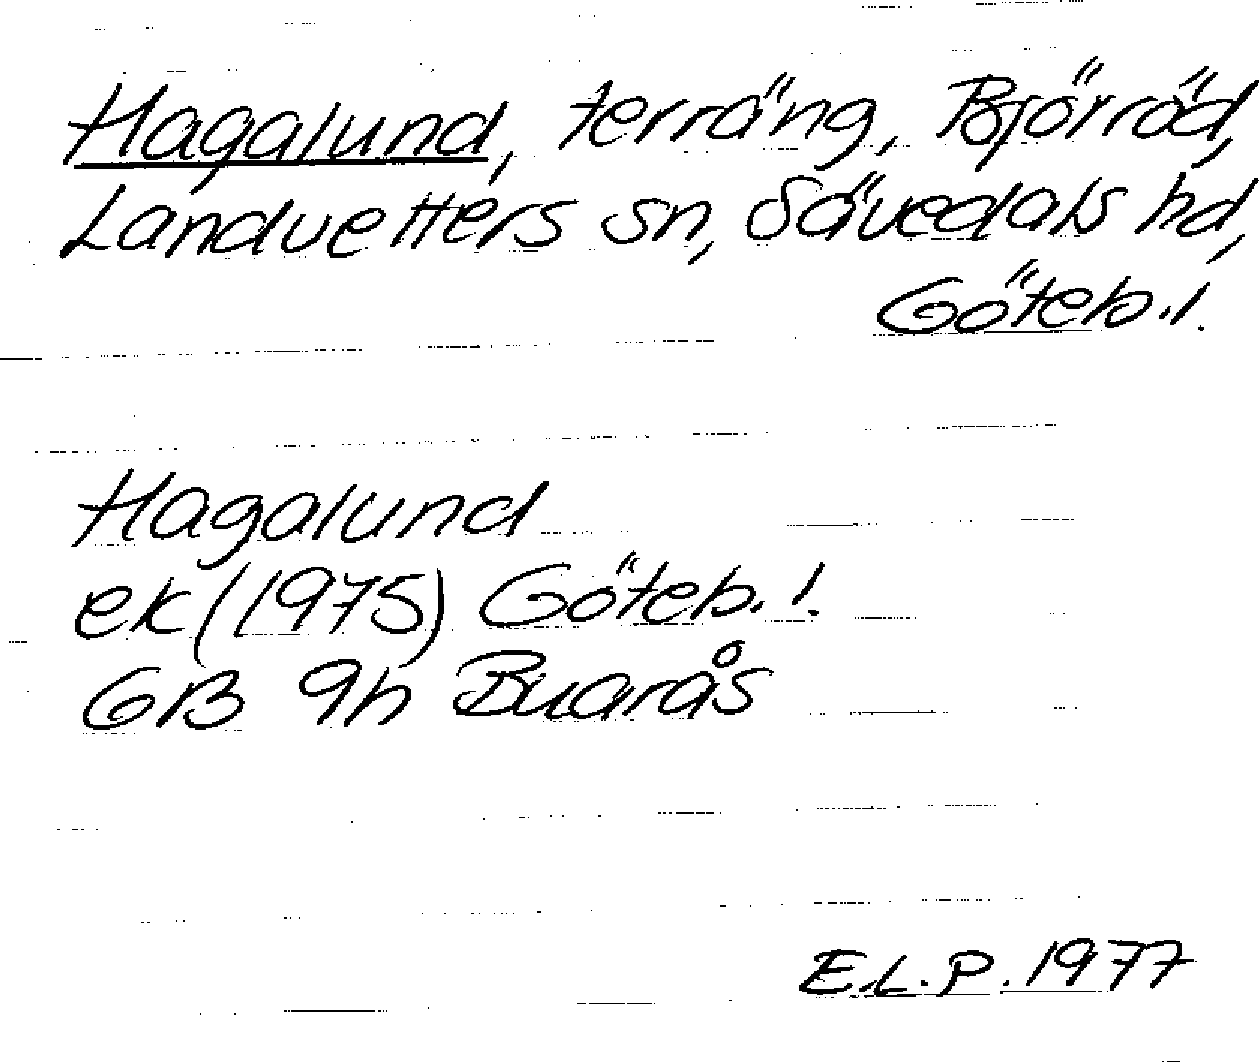 Hagalund, terräng, Björröd,
Landvetters sn, Sävedals hd,
Göteb. l.
Hagalund
ek (1975) Göteb. l.
GB 9h Buarås
E.L.P. 1977